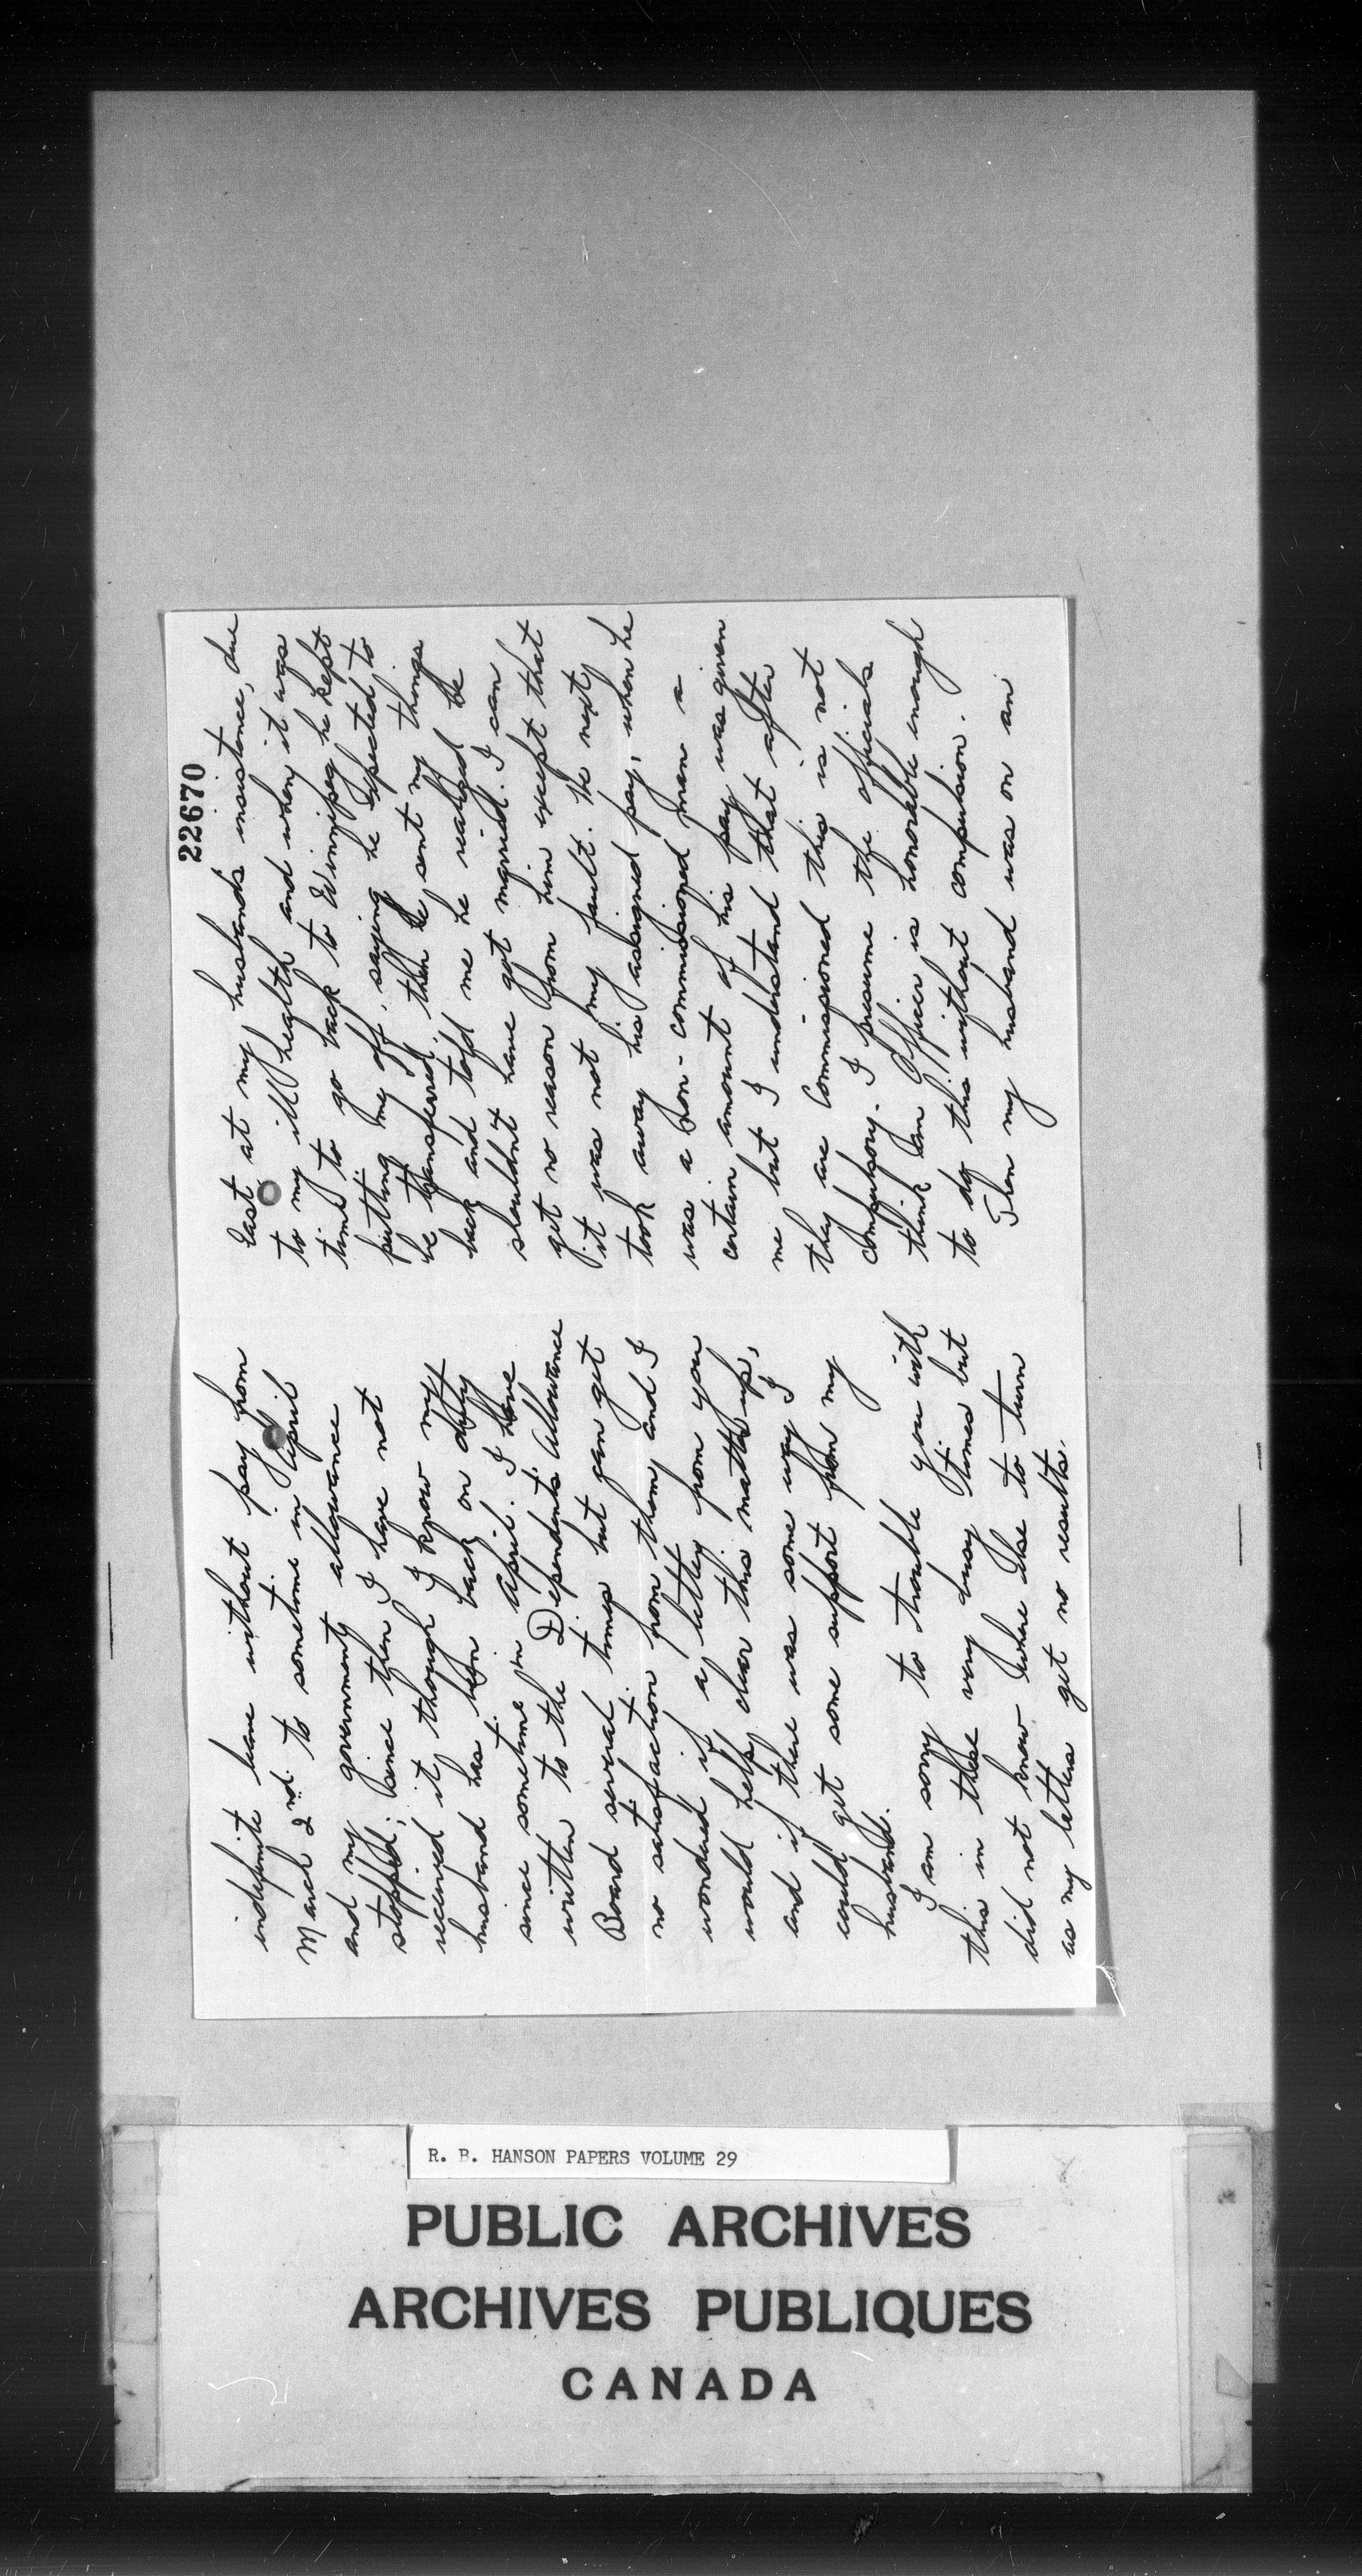 22670
East at my husbands insistence, due
to my ill health and when it was
time to go back to Winnipeg he kept
putting me off, saying he expected to
be transferred, then he sent my things
back and told me he realized he
shouldn't have got married. I can
get no reason from him except that
it was not my fault. He next
took away his assigned pay, when he
was a non-commissioned man a
certain amount of his pay was given
me but I understand that after
they are Commissioned this is not
compulsory. I presume the officials
think an Officer is honorable enough
to do this without compulsion.
Then my husband was on an
indefinite leave without pay from
March 2nd to sometime in April
and my government allowance
stopped; since then I have not
received it though I know my
husband has been back on duty
since sometime in April. I have
written to the Dependents' Allowance
Board several times but can get
no satisfaction from them and I
wondered if a letter from you
would help clear this matter up,
and if there was some way I
could get some support from my
husband.
I am sorry to trouble you with
this in these very busy times but
did not know where else to turn
as my letters get no results.
R. B. HANSON PAPERS VOLUME 29
PUBLIC ARCHIVES
ARCHIVES PUBLIQUES
CANADA